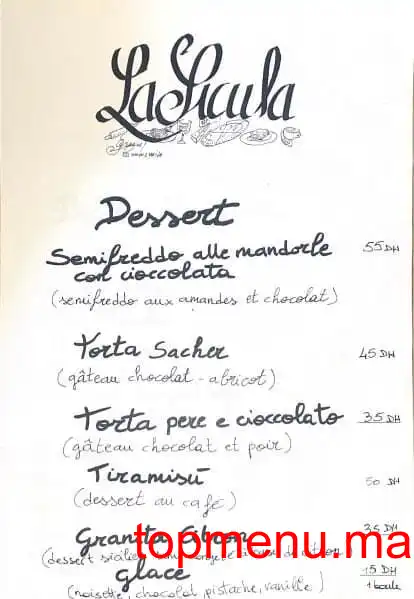 La Sicula
Dessert
Semifreddo alle mandorle 55 DH
con cioccolata
(semifreddo aux amandes et chocolat)
Torta Sacher 45 DH
(gâteau chocolat - abricot)
Torta pere e cioccolato 35 DH
(gâteau chocolat et poir)
Tiramisù 50 DH
(dessert au café)
Granita Citron 35 DH
topmenu.ma
(dessert
glace 15 DH
(noisette, chocolat, pistache, vanille) 1 boule